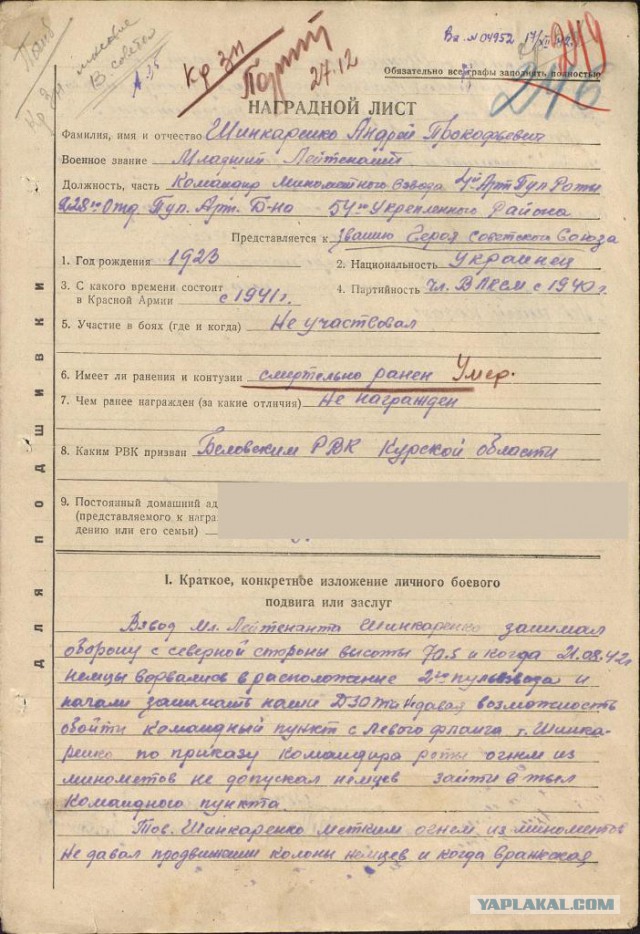 Вх. № 04952 17/XII 42г.
249
246
Кр зн
Погиб
27.12
А.25
Обязательно все графы заполнять полностью
НАГРАДНОЙ ЛИСТ
Фамилия, имя и отчество Шинкаренко Андрей Прокофьевич
Военное звание Младший Лейтенант
Должность, часть Командир минометного взвода 4й Арт Пул Роты
228го Отд. Пул. Арт. Б-на 54го Укрепленного Района
Представляется к званию Героя Советского Союза
1. Год рождения 1923
2. Национальность Украинец
3. С какого времени состоит
в Красной Армии с 1941 г.
4. Партийность Чл. ВЛКСМ с 1940 г.
5. Участие в боях (где и когда) Не участвовал
6. Имеет ли ранения и контузии смертельно ранен Умер.
7. Чем ранее награжден (за какие отличия) Не награжден
8. Каким РВК призван Беловским РВК Курской области
9. Постоянный домашний ад
(представляемого к награ
дению или его семьи)
для подшивки
I. Краткое, конкретное изложение личного боевого
подвига или заслуг
Взвод Мл. Лейтенанта Шинкаренко занимал
оборону с северной стороны высоты 70.5 и когда 21.08.42г
немцы ворвались в расположение 2го пульвзвода и
начали занимать наши ДЗОТы не давая возможность
обойти командный пункт с левого фланга т. Шинка-
ренко по приказу командира роты огнем из
минометов не допускал немцев зайти в тыл
командного пункта.
Тов. Шинкаренко метким огнем из минометов
не давал продвижения колоны немцев и когда вражеская
YAPLAKAL.COM